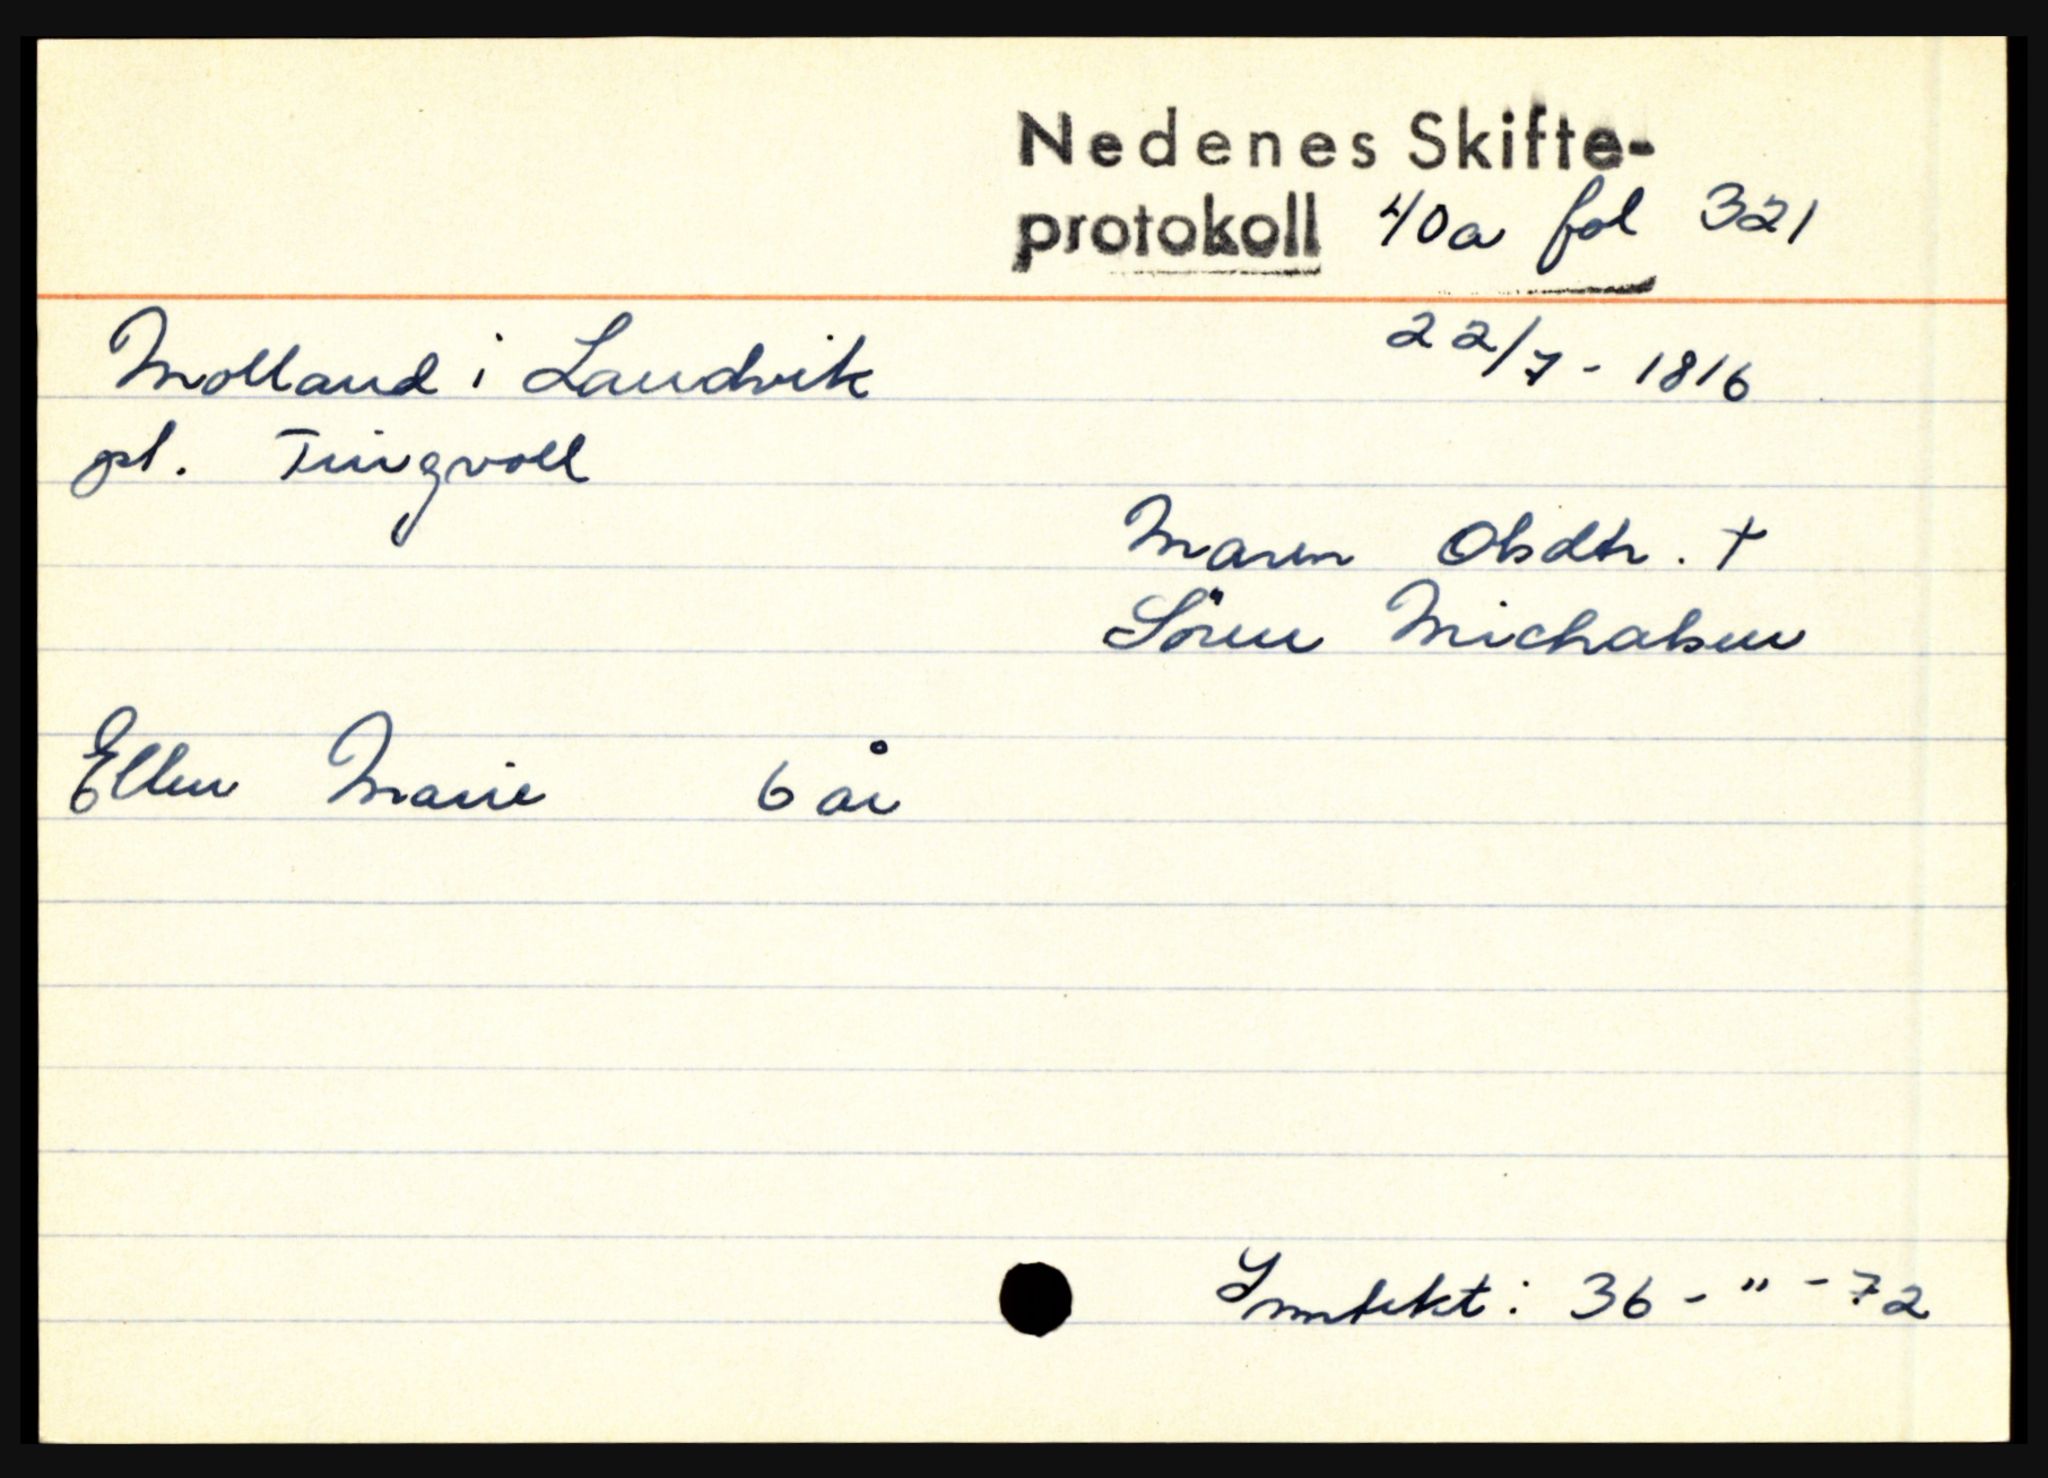 Nedenes Skifte-
protokoll 40a fol 321
Molland i Landvik 22/7 - 1816
pl. Tingvoll
Maren Olsdtr. †
Sören Michalsen
Ellen Marie 6 år
Inntekt: 36 - " - 72